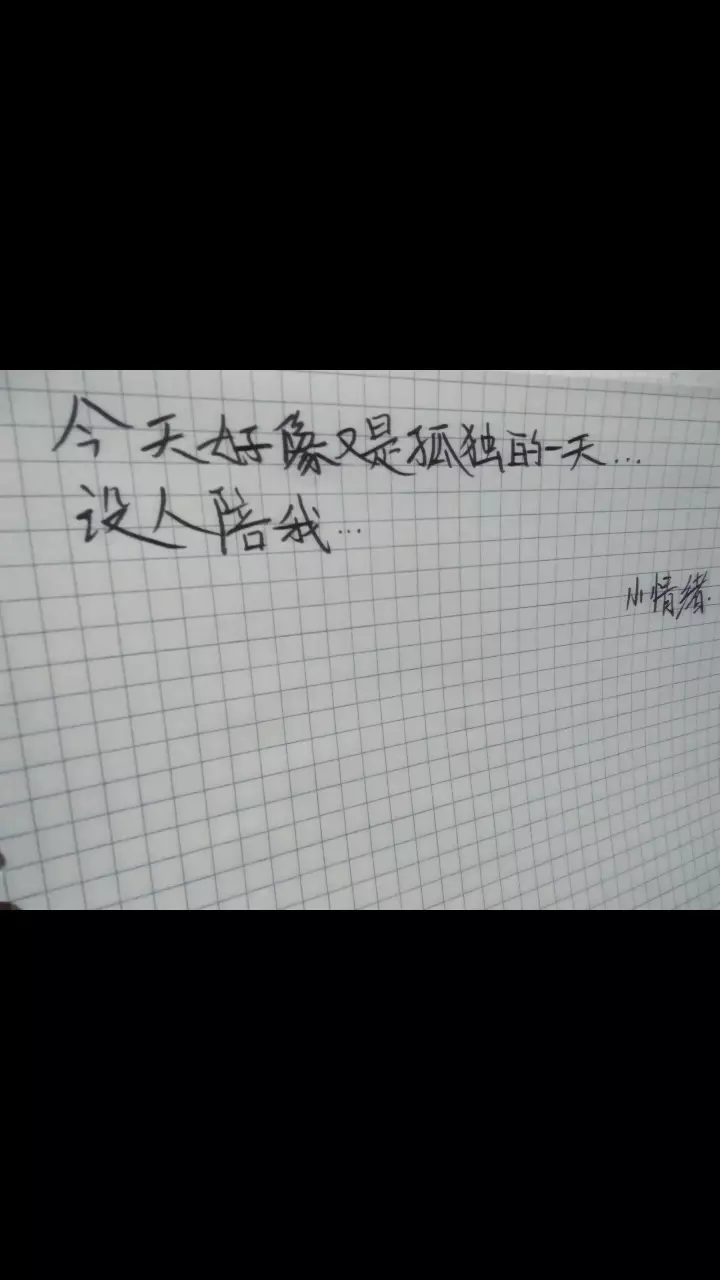 今天好像又是孤独的一天...
没人陪我...
小情绪.